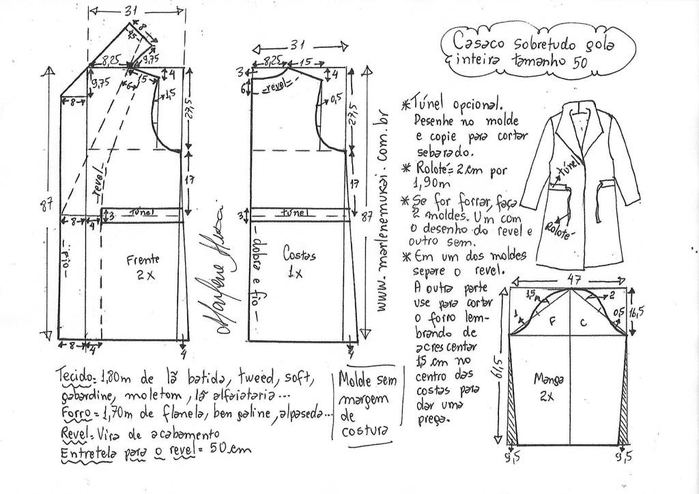 Casaco sobretudo gola
inteira tamanho 50
31
8
15
9,75
8,25
15
4
9,75
6
1,5
27,5
8
revel
17
87
3
Túnel
Frente
2x
fio
8
4
4
31
8,25
15
3
6
revel
4
0,5
27,5
17
3
túnel
87
Costas
1x
dobra e fio
4
Marlene Mukai
www.marlenemukai.com.br
* Túnel opcional.
Desenhe no molde
e copie para cortar
sebarado.
* Rolotê = 2 cm por
1,90m
* Se for forrar, faça
2 moldes. Um com
o desenho do revel e
outro sem.
* Em um dos moldes
separe o revel.
A outra parte
use para cortar
o forro lem-
brando de
acrescentar
15 cm no
centro das
costas para
dar uma
prega.
túnel
Rolotê
47
1,5
2
1
0,5
F
C
16,5
Manga
2x
9,5
9,5
Tecido = 1,80m de lã batida, tweed, soft,
gabardine, moletom, lã alfaiataria...
Forro = 1,70m de flanela, bengaline, alpaseda...
Revel = Vira de acabamento
Entretela para o revel = 50 cm
Molde sem
margem
de
costura